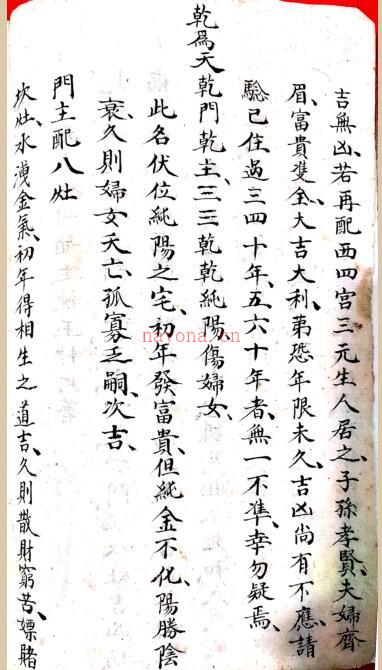 吉無凶、若再配西四宮三元生人居之、子孫孝賢、夫婦齊
眉、富貴雙全、大吉大利、苐恐年限未久、吉凶尚有不應、請
騐已住過三四十年、五六十年者、無一不準、幸勿疑焉、
乾為天乾門乾主、三三乾乾純陽傷婦女、
此名伏位純陽之宅、初年發富貴、但純金不化、陽勝陰
衰、久則婦女夭亡、孤寡乏嗣、次吉、
門主配八灶
坎灶、水洩金氣、初年得相生之道吉、久則散財窮苦、嫖賭
nayona.cn